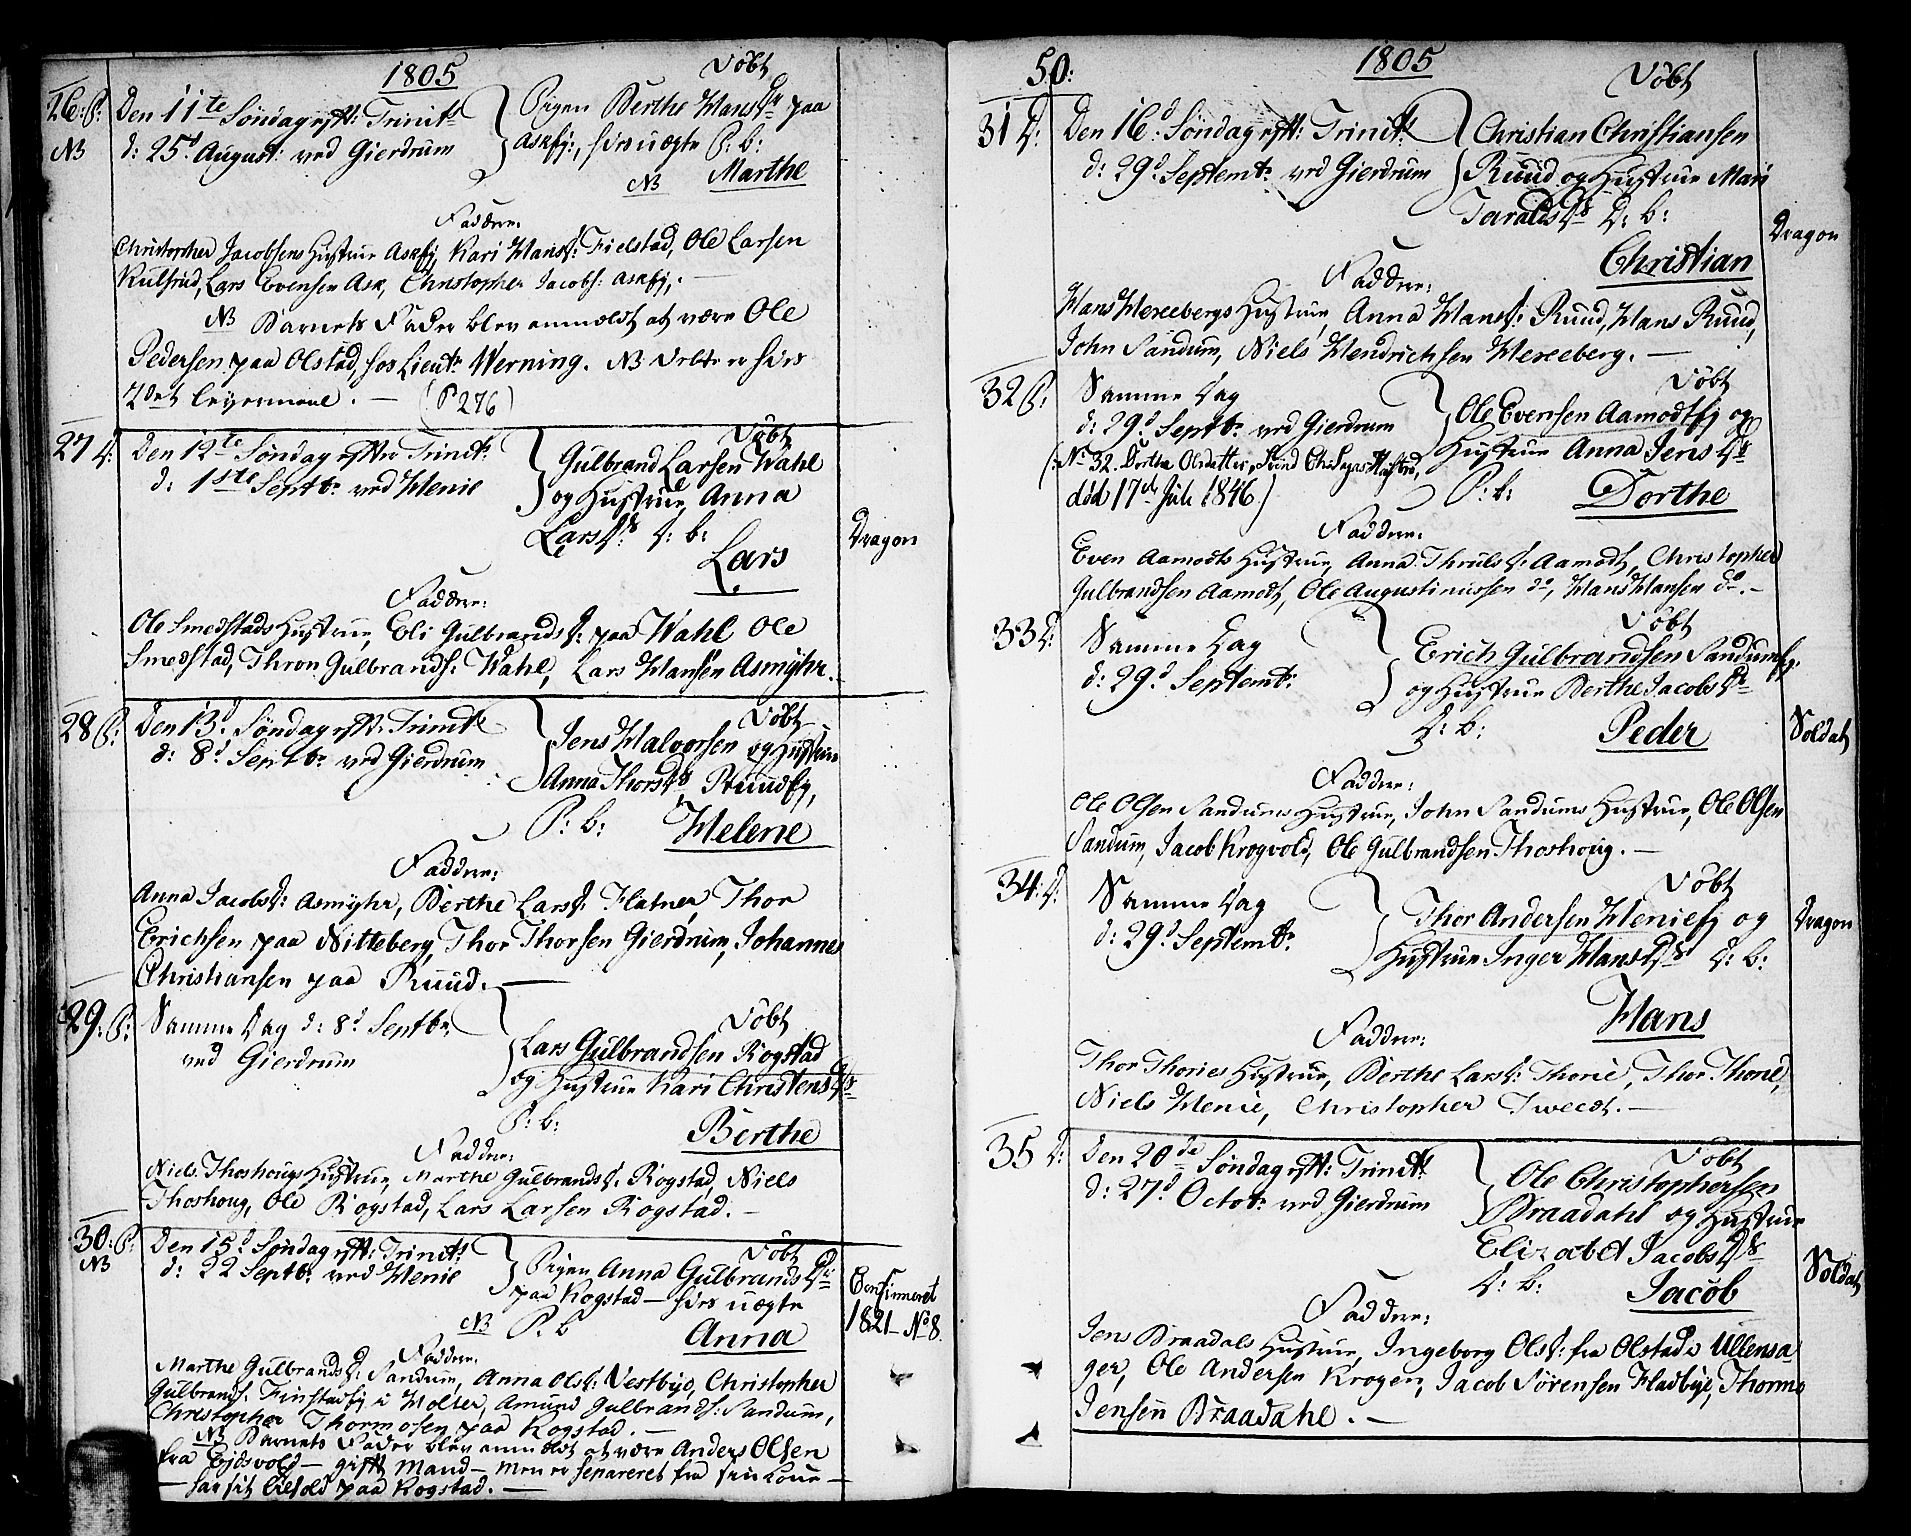 1805
Døbt
26: P:
NB
Den 11te Søndag eft: Trinit:
d: 25d August: ved Gierdrum
Pigen Berthe Hansdr paa
Askej:, hørs uægte P: b:
NB Marthe
Faddere:
Christopher Jacobsens Hustrue Askej, Kari Hansd: Fielstad, Ole Larsen
Kulsrud, Lars Evensen Ask, Christopher Jacobs: Askej,. —
NB Barnets Fader blev anmeldt at være Ole
Pedersen paa Olstad, hos Lieutn Werning. NB Dette er hørs
2det leyermaal. — (P 276)
27 D:
Den 12te Søndag efter Trinit:
d: 1ste Septbr ved Henie
Døbt
Gulbrand Larsen Wahl
og Hustrue Anna
Larsds D: b:
Lars
Dragon
Faddere:
Ole Smedstads Hustrue, Eli Gulbrandsd: paa Wahl Ole
Smedstad, Thron Gulbrands: Wahl, Lars Hansen Asmyhr.
28 P:
Den 13d Søndag eft: Trinit:
d: 8d Septbr ved Gierdrum
Døbt
Jens Halvorsen og Hustrue
Anna Thorsds, Ruudej,
P: b: Helene
Faddere:
Anna Jacobsd: Asmyhr, Berthe Larsd: Flatner, Thor
Erichsen paa Nitteberg, Thor Thorsen Gierdrum, Johannes
Christiansen paa Ruud. —
29: P:
Samme Dag d: 8d Septbr
ved Gierdrum
Døbt
Lars Gulbrandsen Rogstad
og Hustrue Kari Christensds
P: b: Berthe
Faddere:
Niels Thoshougs Hustrue, Marthe Gulbrandsd: Rogstad, Niels
Thoshoug, Ole Rogstad, Lars Larsen Rogstad. —
30: P:
NB
Den 15d Søndag eft: Trinit:
d: 22 Septbr ved Henie
Døbt
Pigen Anna Gulbrandsdr
paa Rogstad — hørs uægte
NB P. b Anna
Confirmeret
1821 — No 8.
Faddere:
Marthe Gulbrandsd: Sandum, Anna Olsd: Vestbye, Christopher
Gulbrands: Finstadej i Holter, Amund Gulbrands: Sandum,
Christopher Thormosen paa Rogstad. —
NB Barnets Fader blev anmeldt at være Anders Olsen
fra Eidsvold — gift Mand — men er separeret fra sin Kone —
— har sit tilhold paa Rogstad. —
50:
1805
31 D:
Den 16d Søndag eft: Trinit:
d: 29d Septembr ved Gierdrum
Døbt
Christian Christiansen
Ruud og Hustrue Mari
Taraldsds D: b:
Christian
Dragon
Faddere:
Hans Hexebergs Hustrue, Anna Hansd: Ruud, Hans Ruud,
John Sandum, Niels Hendrichsen Hexeberg. —
32 P:
Samme Dag
d: 29d Septbr ved Gierdrum
(: No 32. Dorthe Olsdatter,
død 17d Juli 1846.)
Døbt
Ole Evensen Aamodtej og
Hustrue Anna Jensds
P: b: Dorthe
Faddere:
Even Aamodts Hustrue, Anna Thrulsd: Aamodt, Christopher
Gulbrandsen Aamodt, Ole Augustinussen do, Hans Hansen do. —
33 D:
Samme Dag
d: 29d Septembr
Døbt
Erich Gulbrandsen Sandumej:
og Hustrue Berthe Jacobsdr
D: b: Peder
Soldat
Faddere:
Ole Olsen Sandums Hustrue, John Sandums Hustrue, Ole Olsen
Sandum, Jacob Krogvold, Ole Gulbrandsen Thoshoug. —
34: D:
Samme Dag
d: 29d Septembr
Døbt
Thor Andersen Henieej og
Hustrue Inger Hansds D: b:
Hans
Dragon
Faddere:
Thor Thories Hustrue, Berthe Larsd: Thorie, Thor Thorie,
Niels Henie, Christopher Tweedt. —
35 D:
Den 20de Søndag eft: Trinit:
d: 27d Octobr ved Gierdrum
Døbt
Ole Christophersen
Braadahl og Hustrue
Elizabet Jacobsds
D: b: Jacob
Soldat
Faddere:
Jens Braadals Hustrue, Ingeborg Olsd: fra Olstad i Ullensa-
ger, Ole Andersen Krogen, Jacob Sørensen Fladbye, Thorms
Jensen Braadahl. —